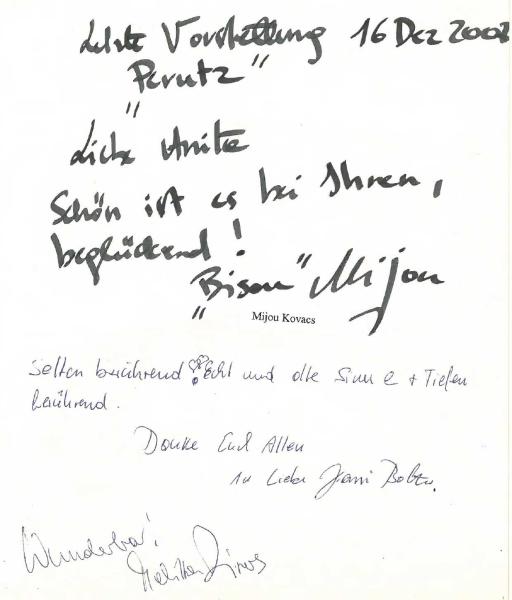 Letzte Vorstellung 16 Dez 2002
"Perutz"
Liebe Anita
Schön ist es bei Ihnen,
beglückend!
"Bisou" Mijou
Mijou Kovacs
Selten berührend echt und alle Sinne + Tiefen
berührend.
Danke Euch Allen
in Liebe
Wunderbar!